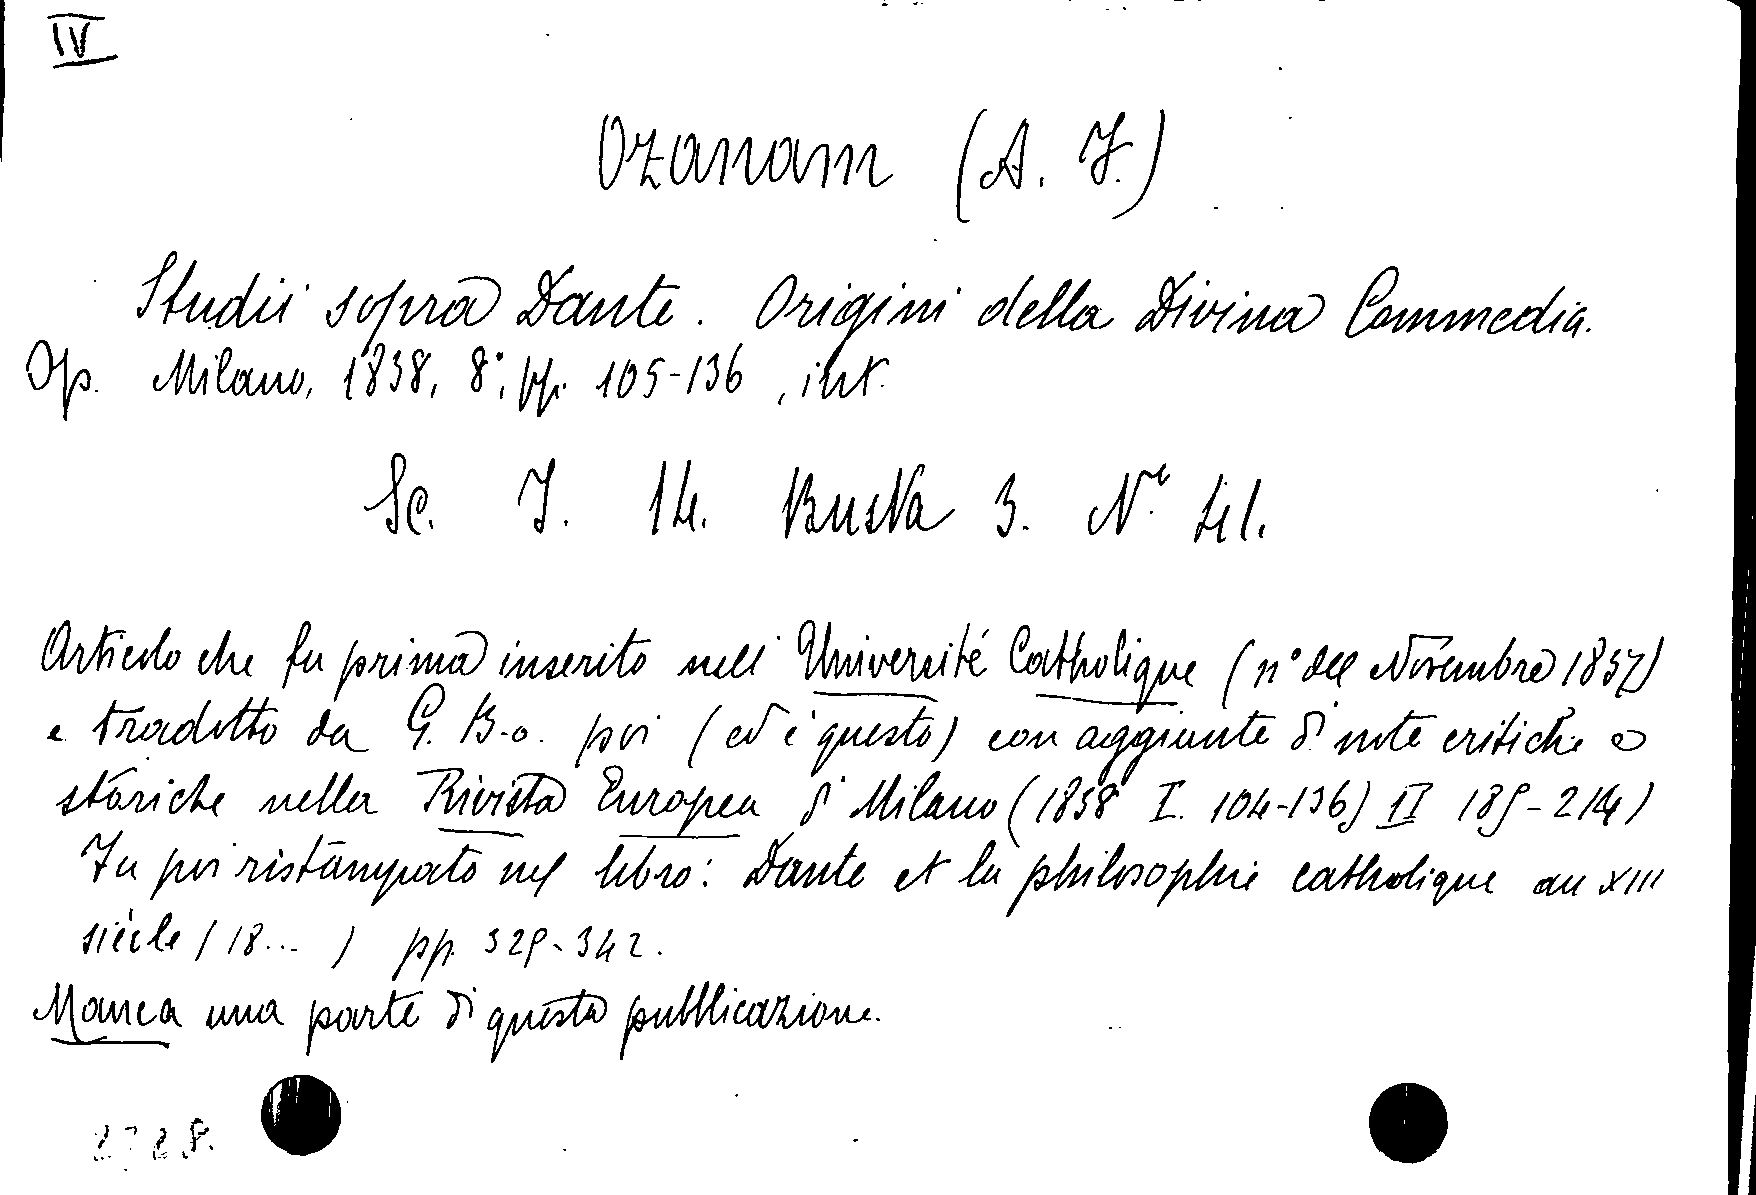 IV
Ozanam (A. F.)
Studii sopra Dante. Origini della Divina Commedia.
Op. Milano, 1838, 8°, pp. 105-136, int.
Sc. I. 14. Busta 3. N.° 41.
Articolo che fu prima inserito nell'Université Catholique (n° del Novembre 1837)
e tradotto da G. B-o. poi (ed è questo) con aggiunte di note critiche e
storiche nella Rivista Europea di Milano (1838 I. 104-136) II 189-214)
Fu poi ristampato nel libro: Dante et la philosophie catholique au XIII
siècle (18...) pp. 329-342.
Manca una parte di questa pubblicazione.